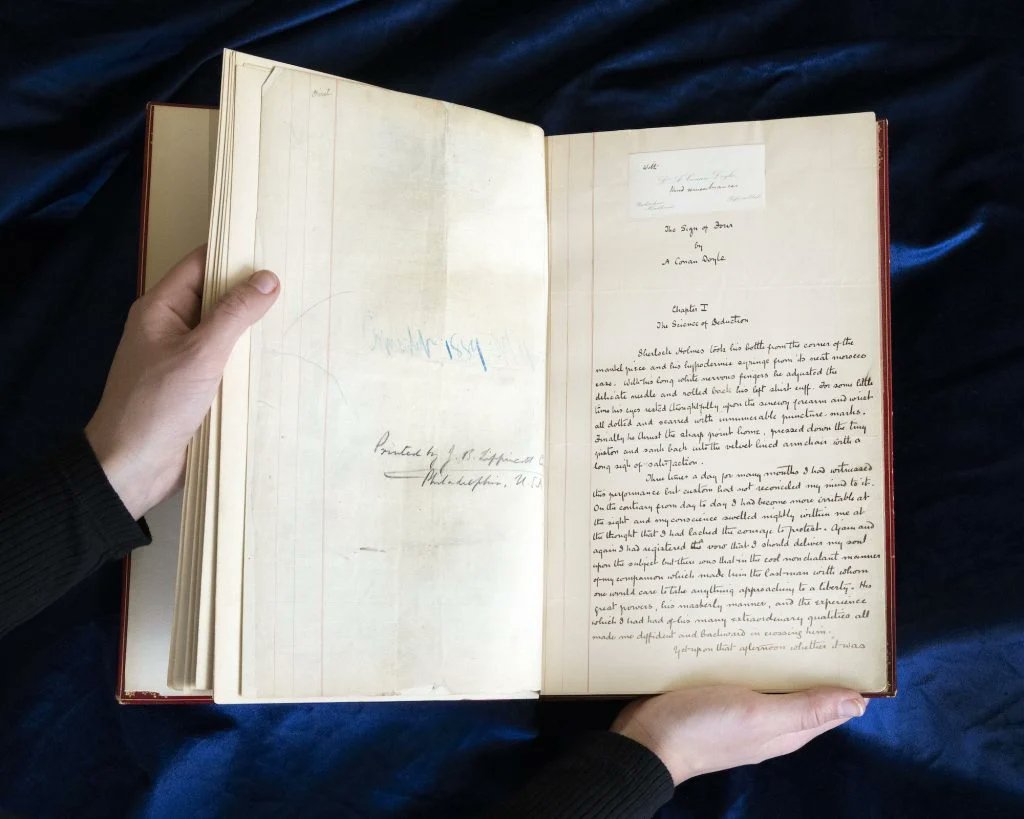 Printed by J. B. Lippincott
Philadelphia, U.S.A
With
Dr. A. Conan Doyle
Kind remembrances
The Sign of Four
by
A Conan Doyle
Chapter I
The Science of Deduction
Sherlock Holmes took his bottle from the corner of the
mantel piece and his hypodermic syringe from its neat morocco
case. With his long white nervous fingers he adjusted the
delicate needle and rolled back his left shirt cuff. For some little
time his eyes rested thoughtfully upon the sinewy forearm and wrist
all dotted and scarred with innumerable puncture-marks.
Finally he thrust the sharp point home, pressed down the tiny
piston and sank back into the velvet lined armchair with a
long sigh of satisfaction.
Three times a day for many months I had witnessed
this performance but custom had not reconciled my mind to it.
On the contrary from day to day I had become more irritable at
the sight and my conscience swelled nightly within me at
the thought that I had lacked the courage to protest. Again and
again I had registered the vow that I should deliver my soul
upon the subject but there was that in the cool nonchalant manner
of my companion which made him the last man with whom
one would care to take anything approaching to a liberty. His
great powers, his masterly manner, and the experience
which I had had of his many extraordinary qualities all
made me diffident and backward in crossing him.
Yet upon that afternoon whether it was